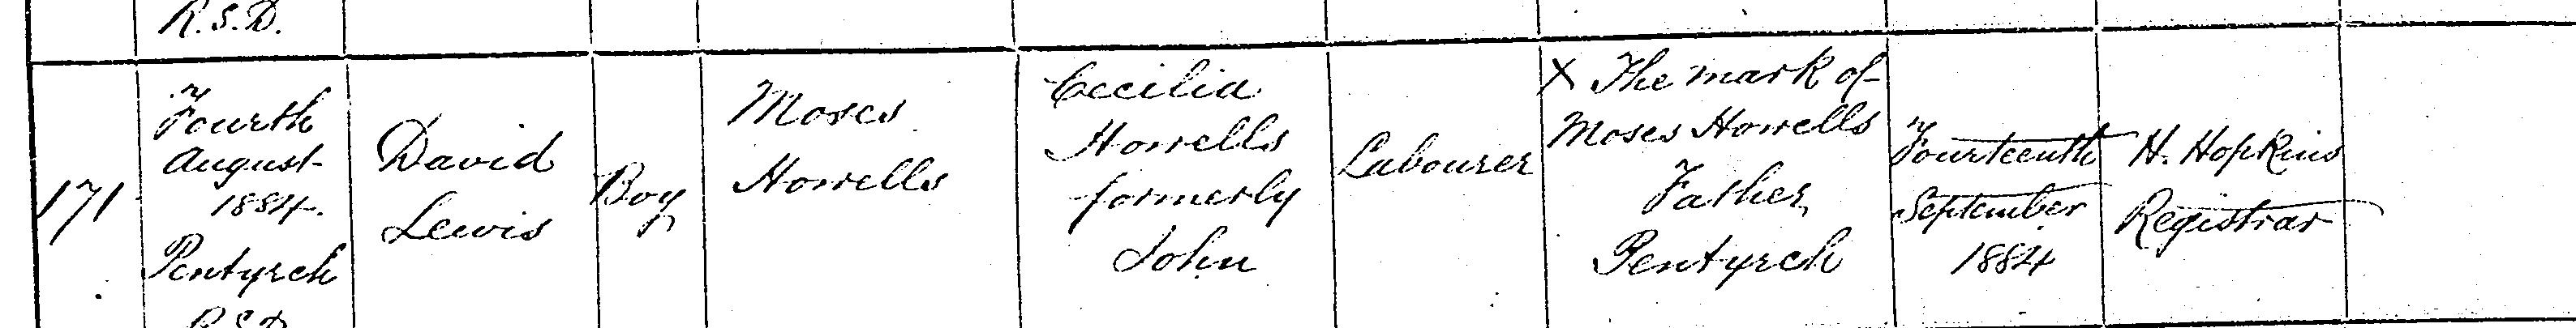 R.S.D.
171
Fourth
August
1884.
Pentyrch
R.S.D.
David
Lewis
Boy
Moses
Howells
Cecilia
Howells
formerly
John
Labourer
X The mark of
Moses Howells
Father
Pentyrch
Fourteenth
September
1884
H. Hopkins
Registrar